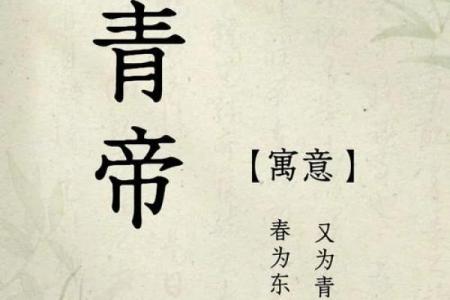 青帝
【寓意】
又为青
春为东